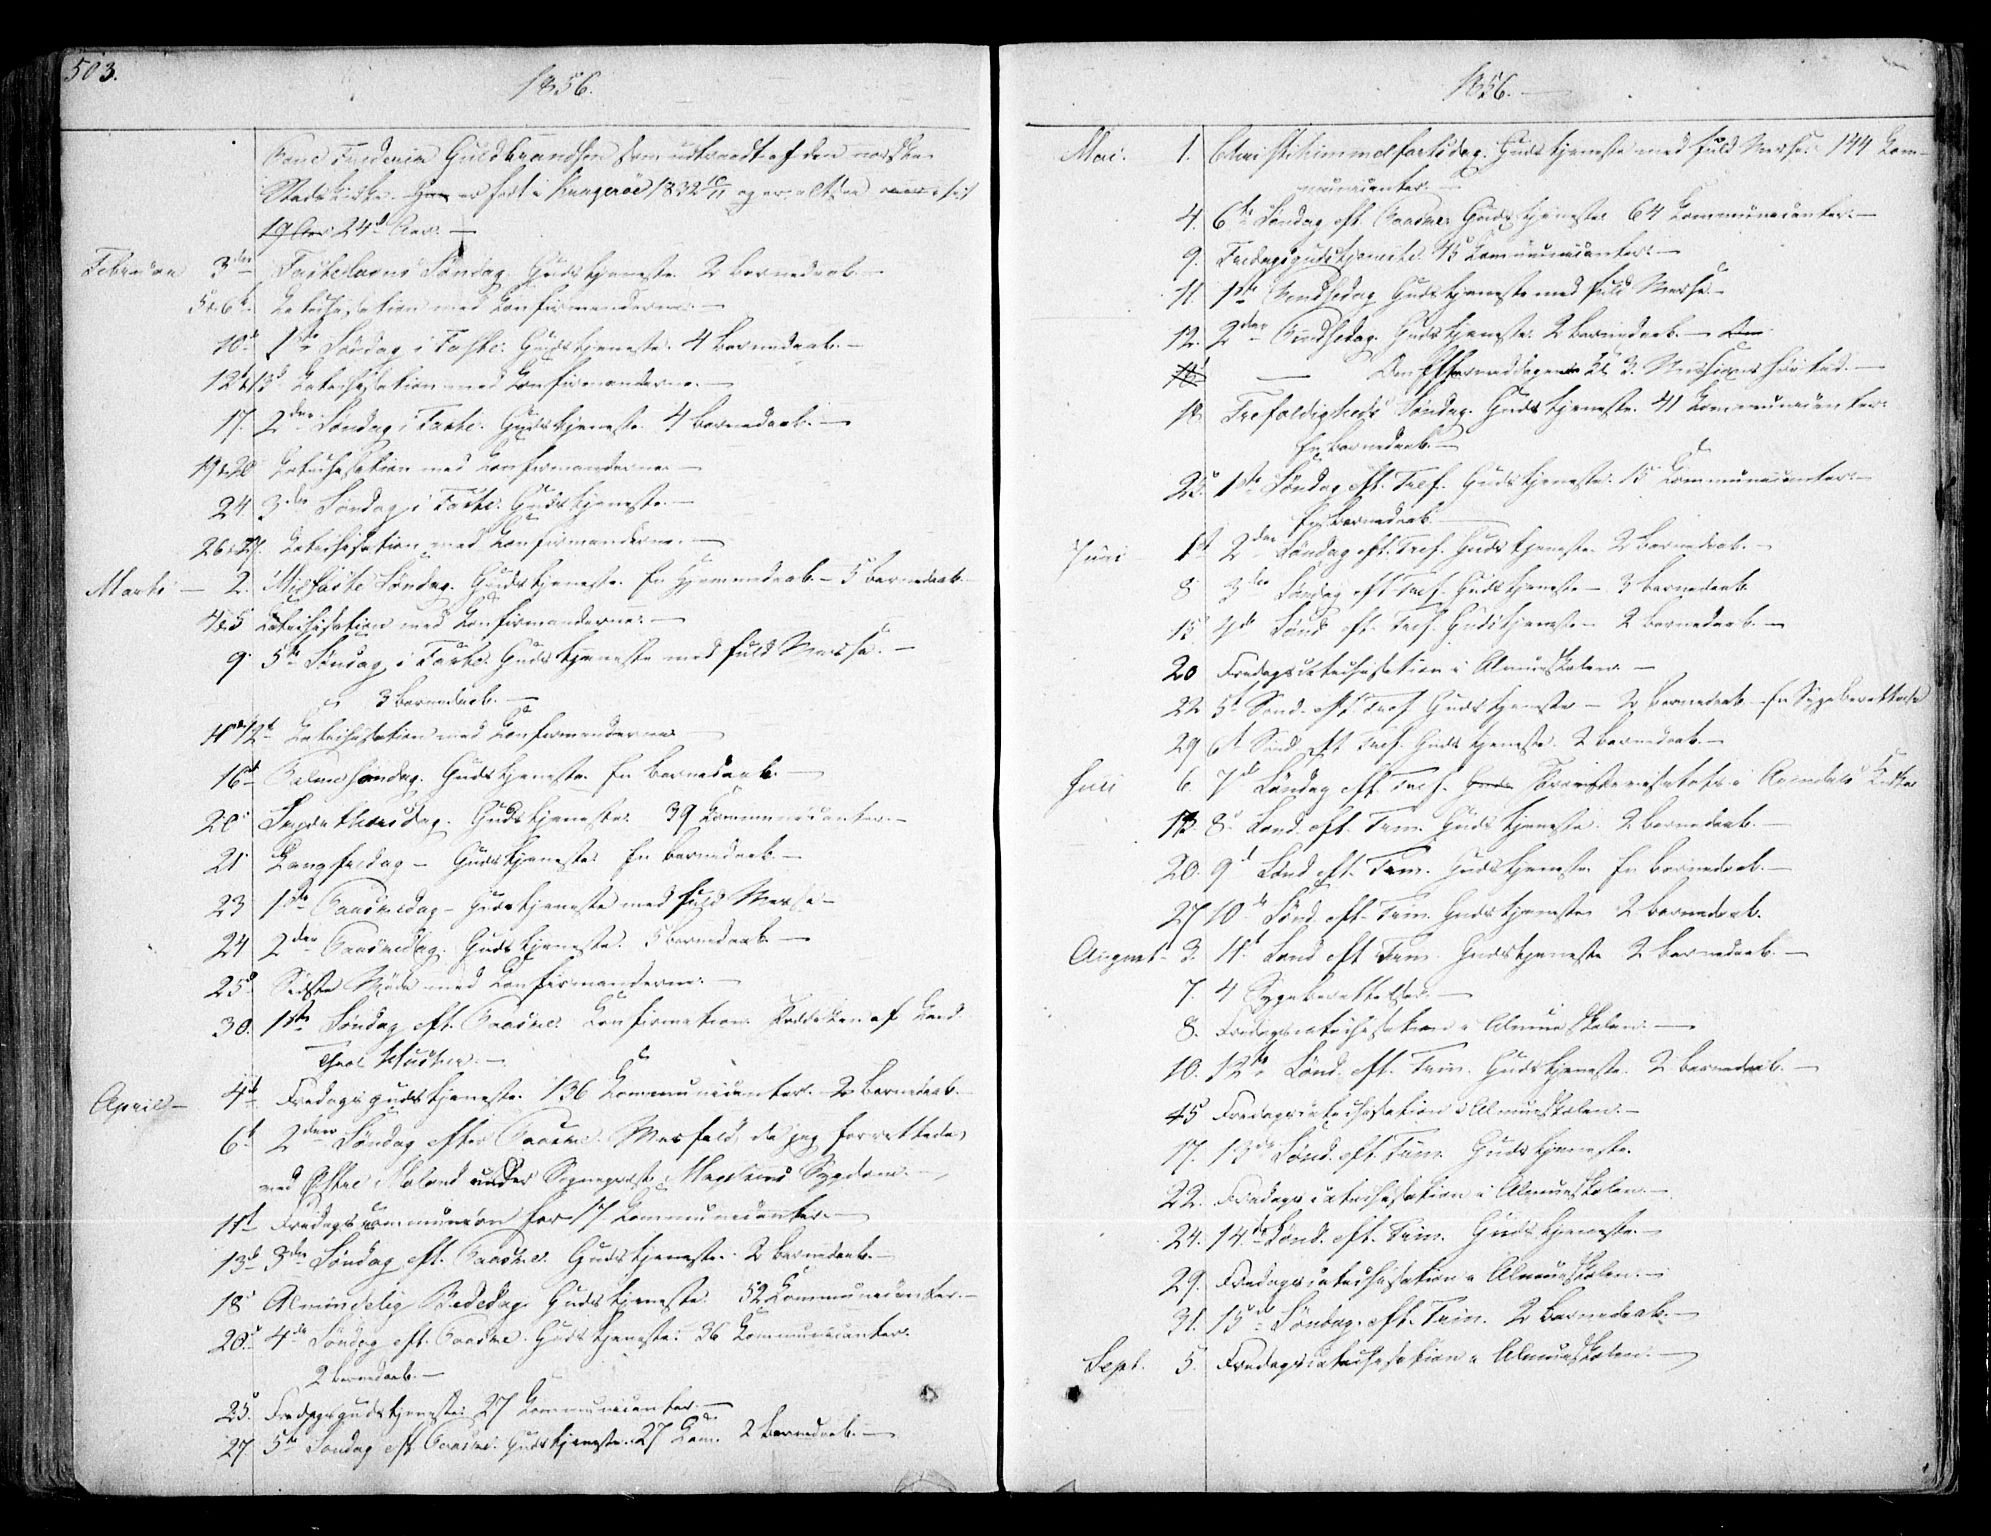 503.
1856.
Frederica Guldbrandsen som udtraadt af den norske
Statskirke. Hun er født i Kragerøe 1832 10/11 og er altsaa i sit
19 Aar 24d Aar. —
Februar 3die Fastelavns Søndag. Gudstjeneste. 2 Barnedaab. —
5 & 6t. Katechisation med Konfirmanderne. —
10d 1ste Søndag i Faste. Gudstjeneste. 4 Barnedaab. —
12 & 13d Katechisation med Konfirmanderne. —
17. 2den Søndag i Faste. Gudstjeneste. 4 Barnedaab. —
19 & 20 Katechisation med Konfirmanderne. —
24 3die Søndag i Faste. Gudstjeneste. —
26 & 27. Katechisation med Konfirmanderne. —
Marts — 2. Midfaste Søndag. Gudstjeneste. En Hjemmedaab. — 5 Barnedaab.
4 & 5 Katechisation med Konfirmanderne. —
9. 5te Søndag i Faste. Gudstjeneste med fuld Messe. —
3 Barnedaab. —
11 & 12t Katechisation med Konfirmanderne —
16d Palmesøndag. Gudstjeneste. En Barnedaab. —
20. Skjærthorsdag. Gudstjeneste. 39 Kommunicanter. —
21 Langfredag — Gudstjeneste. En Barnedaab. —
23 1ste Paaskedag — Gudstjeneste med fuld Messe —
24 2den Paaskedag. Gudstjeneste. 5 Barnedaab. —
25d Sidste Møde med Konfirmanderne. —
30. 1ste Søndag eft. Paaske. Konfirmation. af Kand.
Theol —
April — 4d Fredagsgudstjeneste. 136 Kommunicanter. — 2 Barnedaab. —
6t 2den Søndag efter Paaske. Messfald, da jeg forrettede
ved Østre Moland under Sognepræst Sygdom. —
11t Fredagscommunion for 17 Kommunicanter. —
13d 3die Søndag eft. Paaske. Gudstjeneste. 2 Barnedaab. —
18 Almindelig Bededag. Gudstjeneste. 52 Kommunicanter. —
20d 4de Søndag eft. Paaske. Gudstjeneste. 36 Kommunicanter.
2 Barnedaab. —
25. Fredagsgudstjeneste. 27 Kommunicanter. —
27 5te Søndag eft. Paaske. Gudstjeneste. 27 Kom. 2 Barnedaab. —
1856. —
Mai. 1. Christi himmelfartsdag. Gudstjeneste med fuld Messe. 144 Kom-
municanter. —
4. 6te Søndag eft. Paaske. Gudstjeneste. 64 Kommunicanter. —
9. Fredagsgudstjeneste. 45 Kommunicanter. —
11. 1ste Pindsedag. Gudstjeneste med fuld Messe. —
12. 2den Pindsedag. Gudstjeneste. 2 Barnedaab. — Om
18. — Om Eftermiddagen Kl. 3. Missions høitid. —
18. Trefoldigheds Søndag. Gudstjeneste. 41 Kommunicanter.
En Barnedaab. —
25. 1ste Søndag eft. Tref. Gudstjeneste. 15 Kommunicanter. —
En Barnedaab. —
Juni 1st 2den Søndag eft. Tref. Gudstjeneste. 2 Barnedaab. —
8 3die Søndag eft Tref. Gudstjeneste — 3 Barnedaab.
15d 4de Sønd. eft. Tref. Gudstjeneste — 2 Barnedaab. —
20 Fredagscatechisation i Almueskolen. —
22 5t Sønd. eft Tref Gudstjeneste — 2 Barnedaab — En Sygeberettelse
29 6t Sønd eft Tref. Gudstjeneste. 2 Barnedaab. —
Juli 6. 7de Søndag eft Tref. Guds i Arendals Kirke
13 8. Sønd. eft. Trin. Gudstjeneste. 2 Barnedaab. —
20. 9d Sønd eft. Trin. Gudstjeneste. En Barnedaab. —
27 10de Sønd. eft. Trin. Gudstjeneste 2 Barnedaab.
August — 3. 11t Sønd eft Trin. Gudstjeneste 2 Barnedaab. —
7. 4 Sygeberettelser. —
8. Fredagscatechisation i Almueskolen. —
10. 12te Sønd. eft. Trin. Gudstjeneste. 2 Barnedaab. —
15 Fredagscatechisation i Almueskolen. —
17. 13de Sønd. eft. Trin. Gudstjeneste.
22. Fredagscatechisation i Almueskolen. —
24. 14de Sønd. eft. Trin. Gudstjeneste. —
29. Fredagscatechisation i Almueskolen. —
31. 15de Søndag. eft. Trin. 2 Barnedaab. —
Sept. 5. Fredagscatechisation i Almueskolen. —